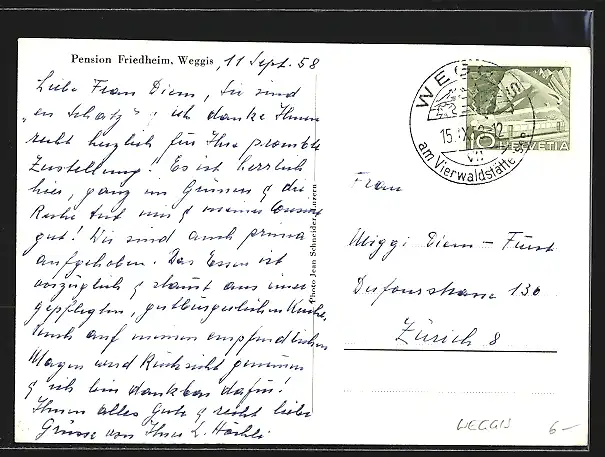 Pension Friedheim, Weggis, 11 Sept. 58
Liebe Frau Diem, Sie sind
"en Schatz" & ich danke Ihnen
recht herzlich für Ihre prompte
Zustellung! Es ist herrlich
hier, ganz im Grünen & die
Ruhe tut mir & meiner Cousine
gut! Wir sind auch prima
aufgehoben. Das Essen ist
vorzüglich & staunt aus einer
gepflegten, gutbürgerlichen Küche.
Auch auf meinen empfindlichen
Magen wird Rücksicht genommen
& ich bin dankbar dafür!
Ihnen alles Gute & recht liebe
Grüsse von Ihrer L.
Photo Jean Schneider, Luzern
WEGGIS
15. IX. 58-12
VII
am Vierwaldstätte
10 HELVETIA
Frau
Diem-Fürst
Dufourstrasse 130
Zürich 8
WEGGIS
6.-